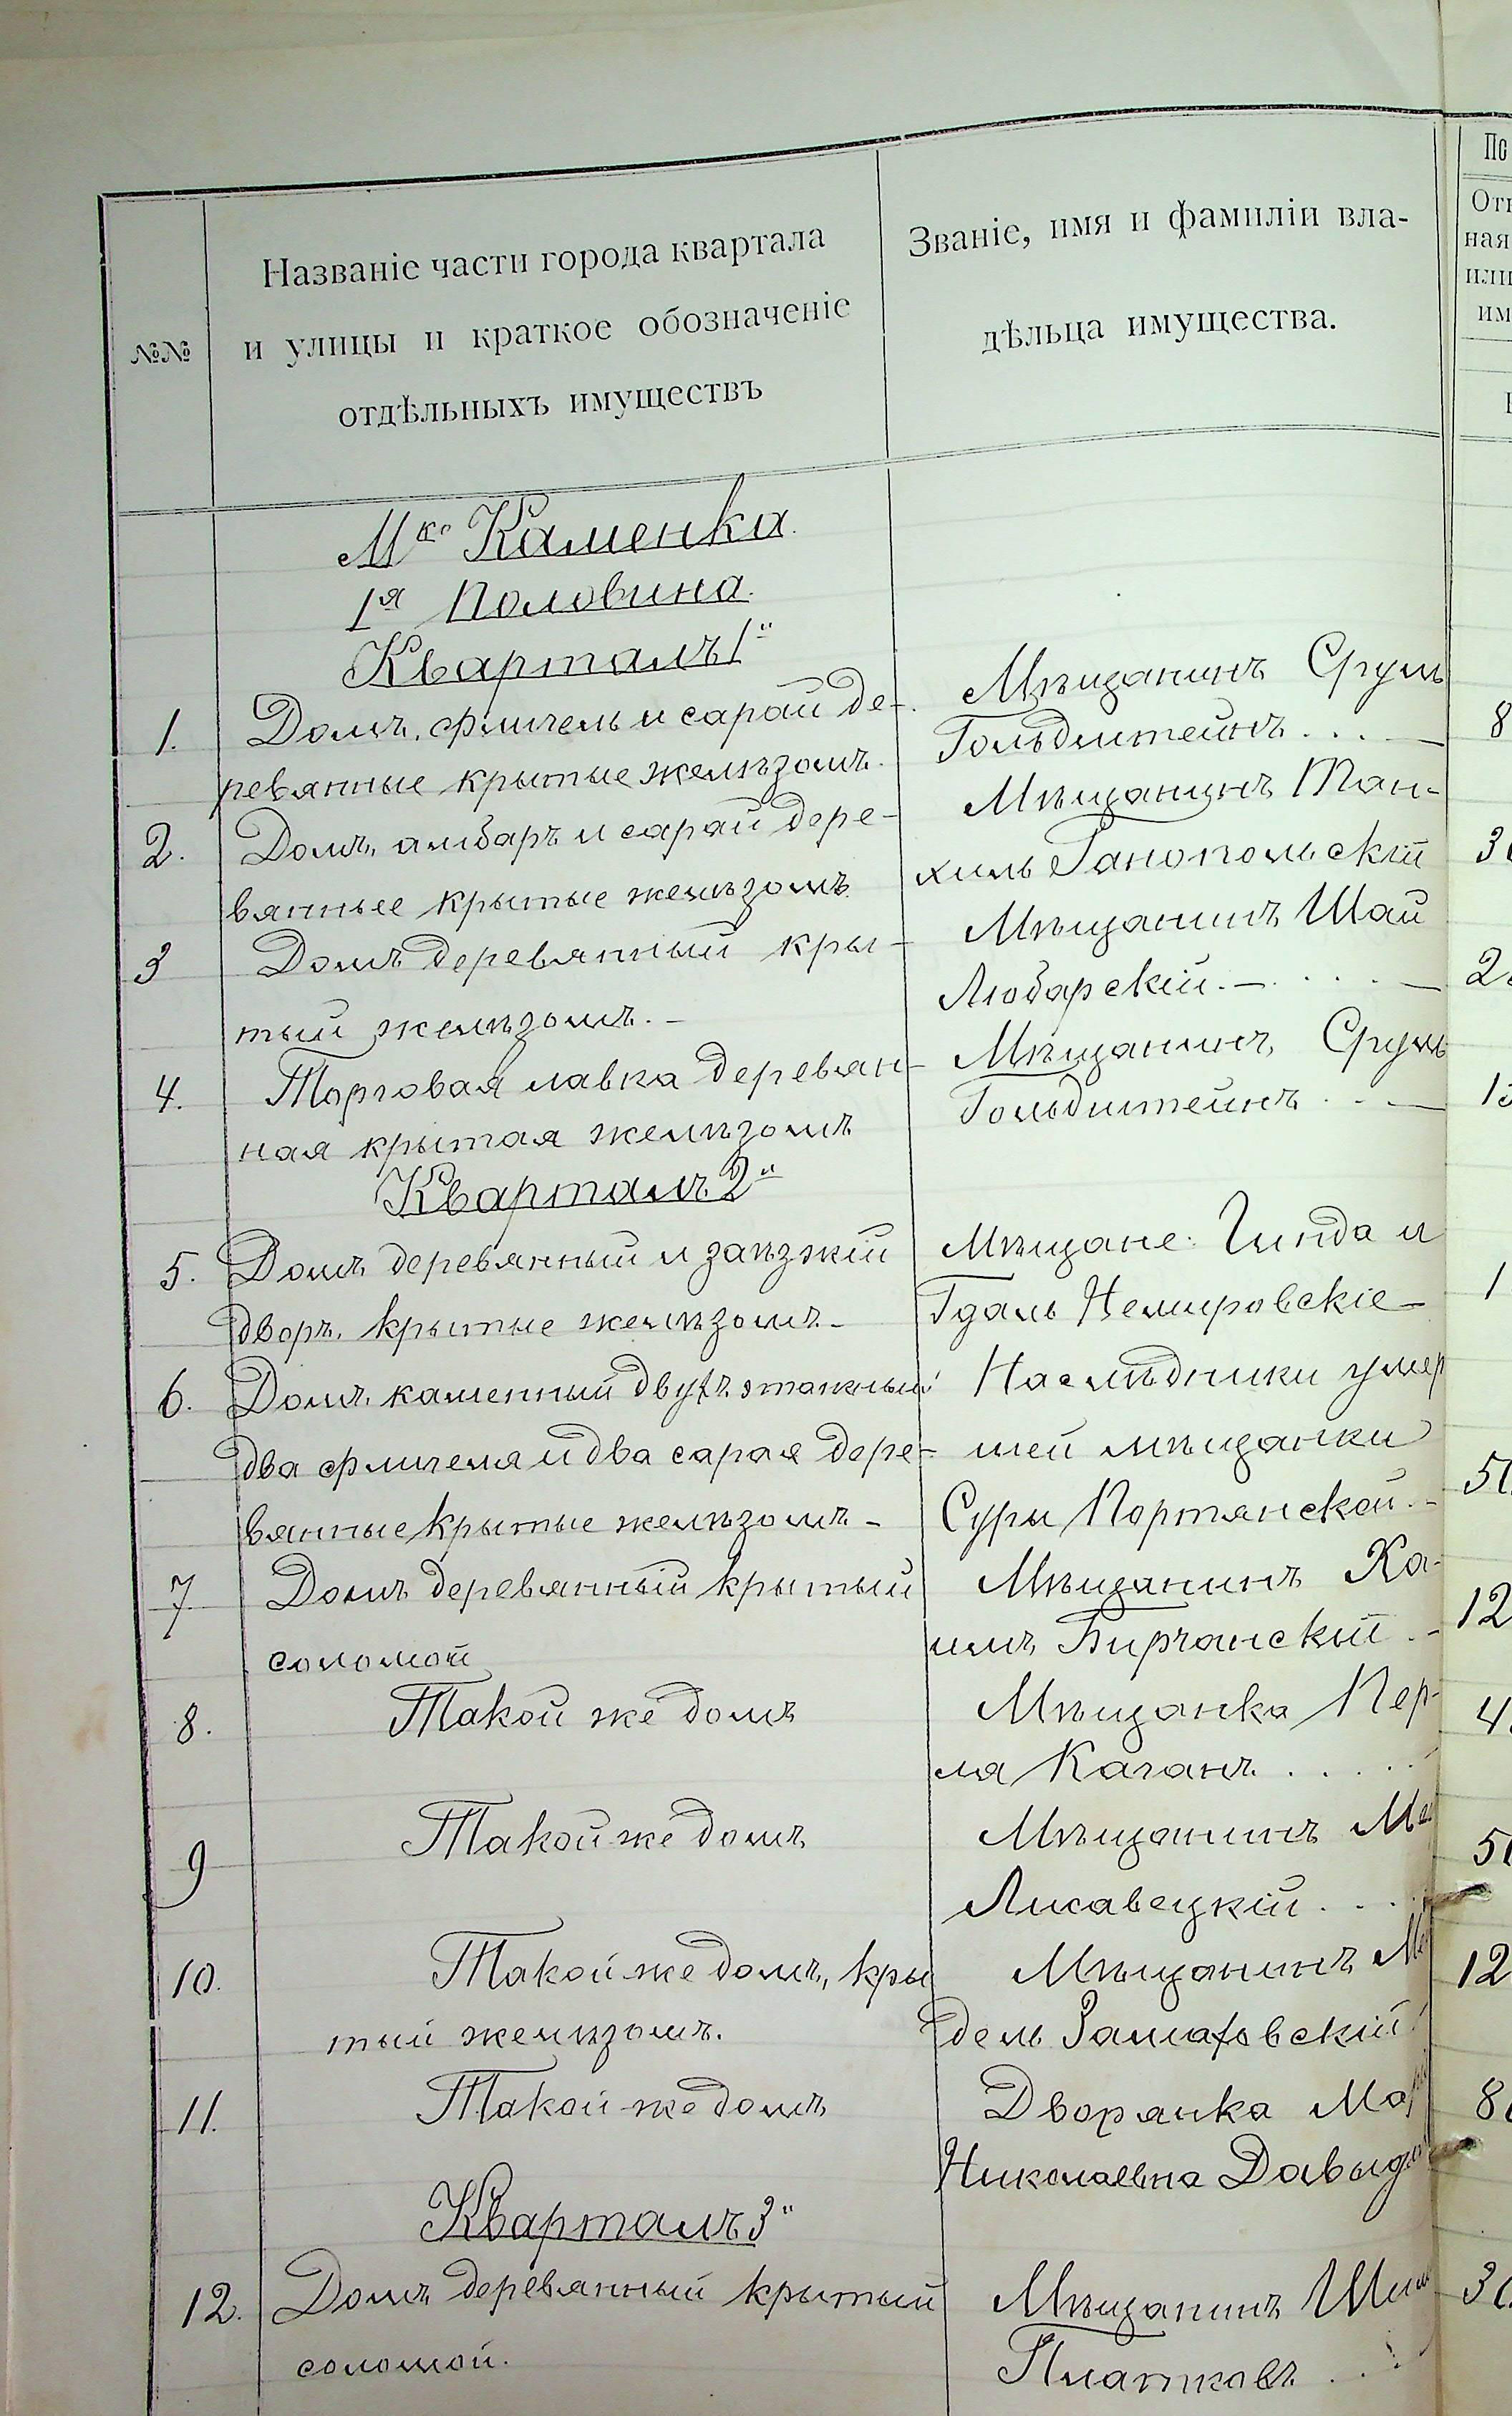 №№
Названіе части города квартала
и улицы и краткое обозначеніе
отдѣльныхъ имуществъ
Званіе, имя и фамиліи вла-
дѣльца имущества.
По
ная
или
им
Мко Каменка.
1я Половина.
Кварталъ 1й
1. Домъ, флигель и сарай де-
ревянные крытые желѣзомъ.
Мѣщанинъ Сруль
Гольдштейнъ . . . —
8
2. Домъ, амбаръ и сарай дере-
вянные крытые желѣзомъ.
Мѣщанинъ Тан-
хиль Ганопольскій
3
3 Домъ деревянный кры-
тый желѣзомъ. –
Мѣщанинъ Шай
Любарскій. – . . . —
2
4. Торговая лавка деревян-
ная крытая желѣзомъ
Мѣщанинъ Сруль
Гольдштейнъ . . . —
1
Кварталъ 2й
5. Домъ деревянный и заѣзжій
дворъ, крытые желѣзомъ –
Мѣщане: Гинда и
Гдаль Немировскіе –
1
6. Домъ каменный двухъэтажный
два флигеля и два сарая дере-
вянные крытые желѣзомъ –
Наслѣдники умер
шей мѣщанки
Суры Портянской. –
5
7 Домъ деревянный крытый
соломой
Мѣщанинъ Ха-
имъ Бирчанскій . –
12
8. Такой же домъ
Мѣщанка Пер-
ля Каганъ . . . . .
4
9 Такой же домъ
Мѣщанинъ
Лисавецкій . . .
5
10. Такой же домъ, кры
тый желѣзомъ.
Мѣщанинъ
дель
12
11. Такой же домъ
Дворянка
Николаевна
8
Кварталъ 3й
12. Домъ деревянный крытый
соломой.
Мѣщанинъ
Платковъ . . .
3